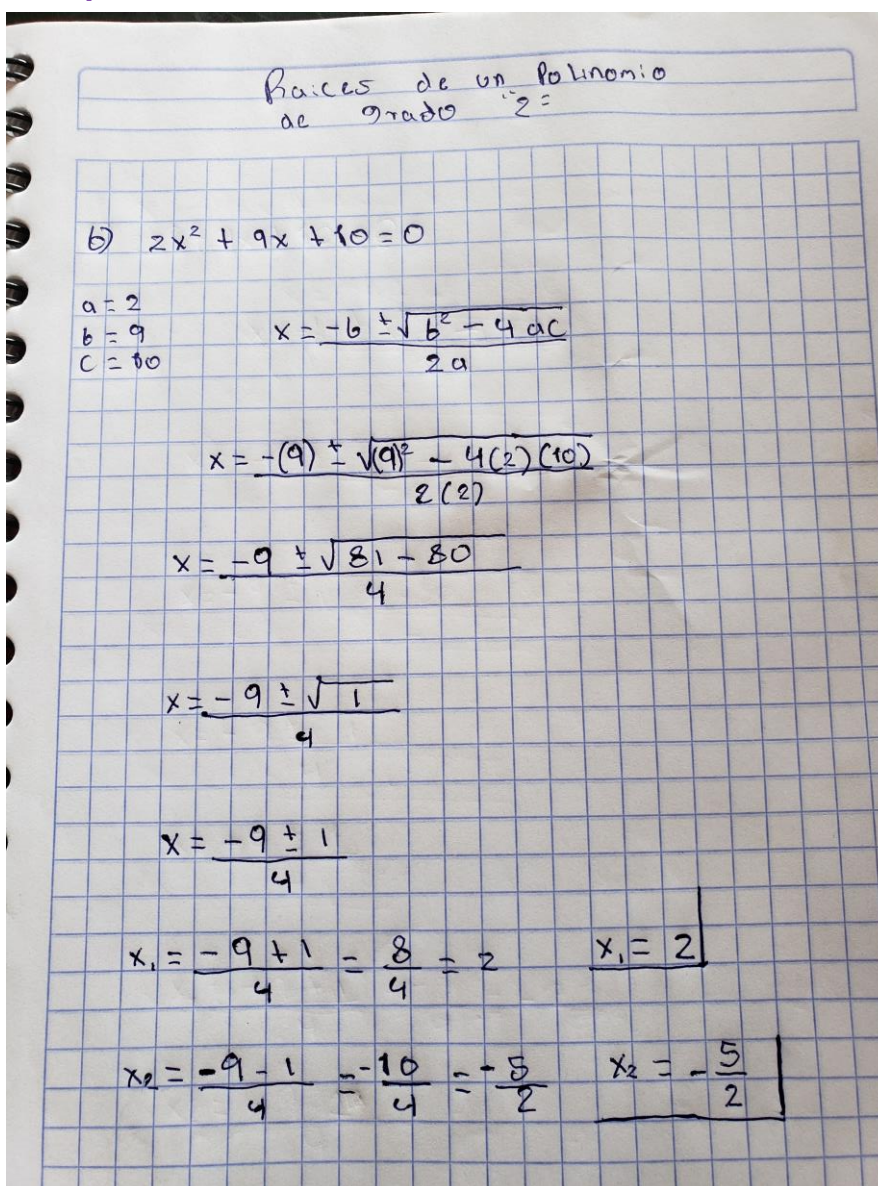 Raices de un Polinomio
de grado "2"
b) 2x² + 9x + 10 = 0
a = 2
b = 9
c = 10
x = -b ± √b² - 4ac / 2a
x = -(9) ± √(9)² - 4(2)(10) / 2(2)
x = -9 ± √81 - 80 / 4
x = -9 ± √1 / 4
x = -9 ± 1 / 4
x₁ = -9 + 1 / 4 = 8/4 = 2 x₁ = 2
x₂ = -9 - 1 / 4 = -10/4 = -5/2 x₂ = -5/2